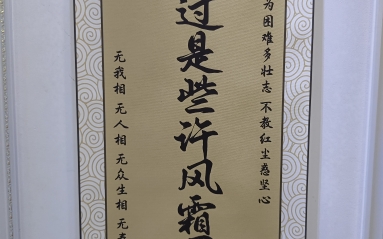 为困难多壮志 不教红尘惑坚心
过是些许风霜
无我相 无人相 无众生相 无